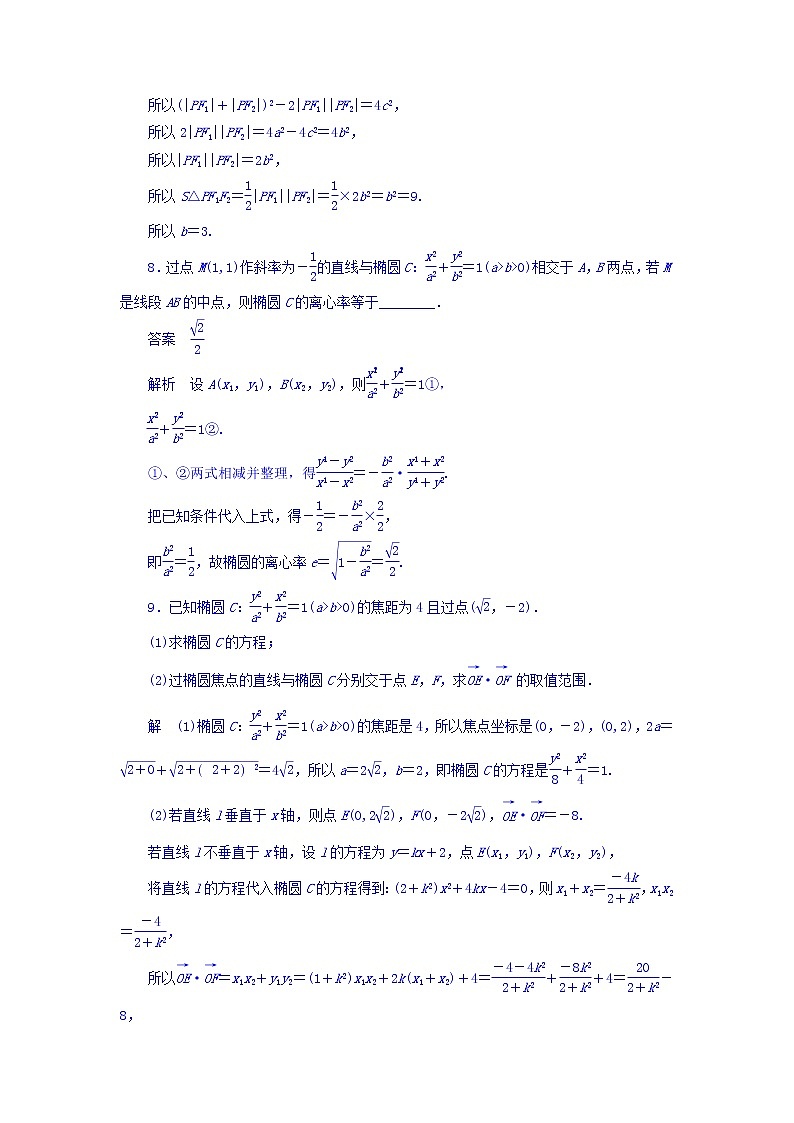 所以(|PF₁|+|PF₂|)²-2|PF₁||PF₂|=4c²,
所以 2|PF₁||PF₂|=4a²-4c²=4b²,
所以|PF₁||PF₂|=2b²,
所以 S△PF₁F₂=\frac{1}{2}|PF₁||PF₂|=\frac{1}{2}×2b²=b²=9.
所以 b=3.
8.过点 M(1,1)作斜率为-\frac{1}{2}的直线与椭圆 C:\frac{x²}{a²}+\frac{y²}{b²}=1(a>b>0)相交于 A,B 两点,若 M
是线段 AB 的中点,则椭圆 C 的离心率等于________.
答案 \frac{\sqrt{2}}{2}
解析 设 A(x₁,y₁),B(x₂,y₂),则\frac{x²}{a²}+\frac{y²}{b²}=1①,
\frac{x²}{a²}+\frac{y²}{b²}=1②.
①、②两式相减并整理,得\frac{y¹-y²}{x¹-x²}=-\frac{b²}{a²}·\frac{x¹+x²}{y¹+y²}.
把已知条件代入上式,得-\frac{1}{2}=-\frac{b²}{a²}×\frac{2}{2},
即\frac{b²}{a²}=\frac{1}{2},故椭圆的离心率 e=\sqrt{1-\frac{b²}{a²}}=\frac{\sqrt{2}}{2}.
9.已知椭圆 C:\frac{y²}{a²}+\frac{x²}{b²}=1(a>b>0)的焦距为 4 且过点(\sqrt{2},-2).
(1)求椭圆 C 的方程;
(2)过椭圆焦点的直线与椭圆 C 分别交于点 E,F,求\overrightarrow{OE}·\overrightarrow{OF} 的取值范围.
解 (1)椭圆 C:\frac{y²}{a²}+\frac{x²}{b²}=1(a>b>0)的焦距是 4,所以焦点坐标是(0,-2),(0,2),2a=
\sqrt{2+0}+\sqrt{2+( 2+2) ²}=4\sqrt{2},所以 a=2\sqrt{2},b=2,即椭圆 C 的方程是\frac{y²}{8}+\frac{x²}{4}=1.
(2)若直线 l 垂直于 x 轴,则点 E(0,2\sqrt{2}),F(0,-2\sqrt{2}),\overrightarrow{OE}·\overrightarrow{OF}=-8.
若直线 l 不垂直于 x 轴,设 l 的方程为 y=kx+2,点 E(x₁,y₁),F(x₂,y₂),
将直线 l 的方程代入椭圆 C 的方程得到:(2+k²)x²+4kx-4=0,则 x₁+x₂=\frac{-4k}{2+k²},x₁x₂
=\frac{-4}{2+k²},
所以\overrightarrow{OE}·\overrightarrow{OF}=x₁x₂+y₁y₂=(1+k²)x₁x₂+2k(x₁+x₂)+4=\frac{-4-4k²}{2+k²}+\frac{-8k²}{2+k²}+4=\frac{20}{2+k²}-
8,